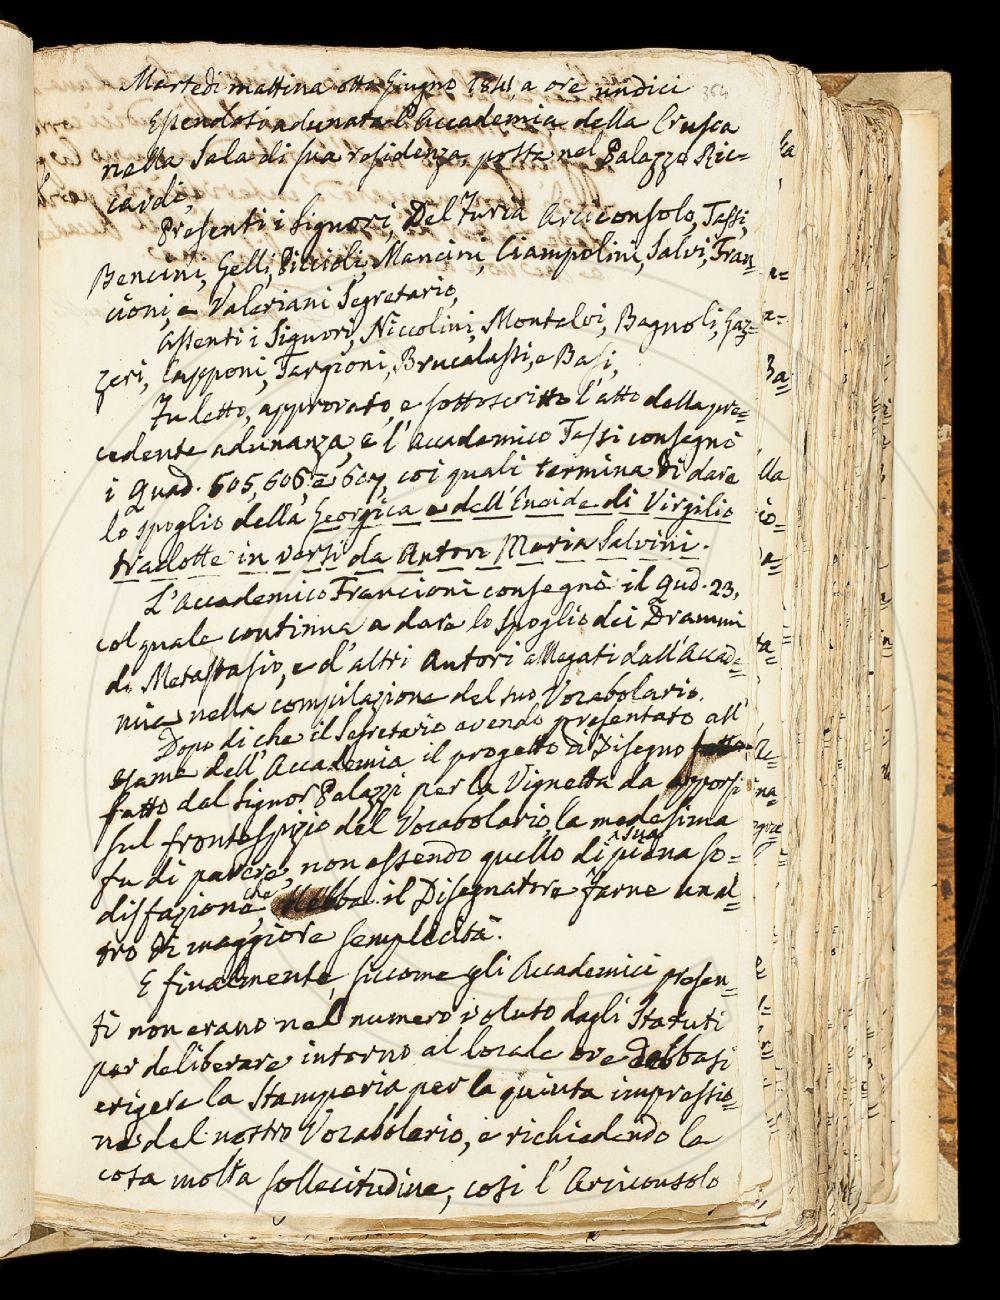 Martedì mattina otto Giugno 1841, a ore undici
364
Essendosi adunata l'Accademia della Crusca
nella Sala di sua residenza, posta nel Palazzo Ric=
cardi,
Presenti i Signori, Del Furia Arciconsolo, Tassi,
Bencini, Gelli, Piccioli, Mancini, Ciampolini, Salvi, Fran=
cioni, e Valeriani Segretario,
Assenti i Signori, Niccolini, Montalvi, Bagnoli, Gaz=
zeri, Capponi, Targioni, Brucalassi, e Basi,
Fu letto, approvato, e sottoscritto l'atto della pre=
cedente adunanza, e l'Accademico Tassi consegnò
i Quad. 605, 606, e 607, coi quali termina di dare
lo spoglio della Georgica e dell'Eneide di Virgilio
tradotte in versi da Anton Maria Salvini.
L'Accademico Francioni consegnò il Quad. 23,
col quale continua a dare lo spoglio dei Drammi
di Metastasio, e d'altri Autori allegati dall'Accade=
mia nella compilazione del suo Vocabolario.
Dopo di che il Segretario avendo presentato all'
esame dell'Accademia il progetto di Disegno
fatto dal Signor Palazzi per la Vignetta da apporsi
sul frontespizio del Vocabolario, la medesima
fu di parere, non essendo quello di sua piena so=
disfazione, che debba il Disegnatore farne un al=
tro di maggiore semplicità.
E finalmente, siccome gli Accademici presen=
ti non erano nel numero voluto dagli Statuti
per deliberare intorno al locale ove debbasi
erigere la Stamperia per la quinta impressio=
ne del nostro Vocabolario, e richiedendo la
cosa molta sollecitudine, così l'Arciconsolo